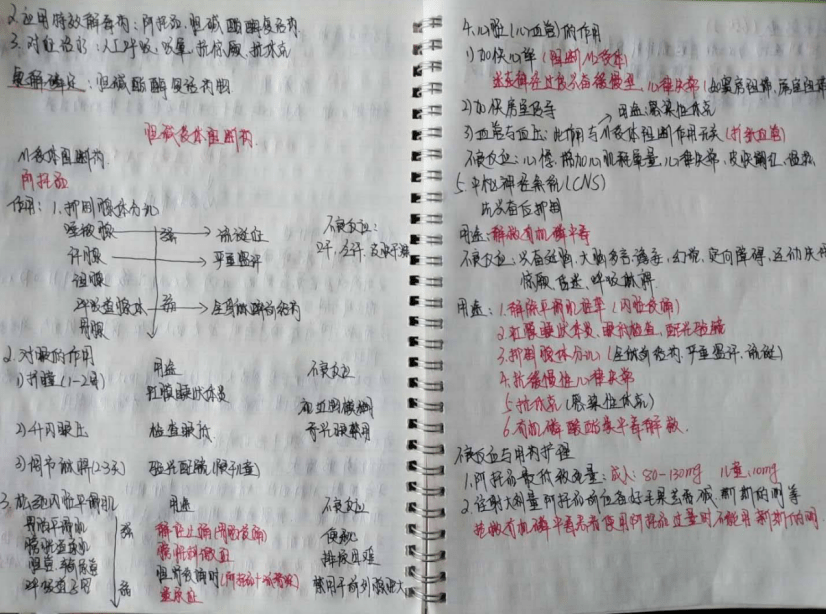 2.应用特效解毒药：阿托品、胆碱酯酶复活药
3.对症治疗：人工呼吸、吸氧、抗惊厥、抗休克
氯解磷定：胆碱酯酶复活药物
胆碱受体阻断药
M受体阻断药
阿托品
作用：1.抑制腺体分泌
唾液腺 强 → 流涎症
汗腺 → 严重盗汗
泪腺
呼吸道腺体 弱 → 全身麻醉前给药
胃腺
不良反应：
口干、乏汗、皮肤干燥
2.对眼的作用 用途 不良反应
1)扩瞳(1-2周) 虹膜睫状体炎
视近物模糊
2)升内眼压 检查眼底 青光眼禁用
3)调节麻痹(2-3天) 验光配镜(限于儿童)
3.松弛内脏平滑肌 用途 不良反应
胃肠平滑肌 强 解痉止痛(内脏绞痛) 便秘
膀胱逼尿肌 膀胱刺激症 排尿困难
胆管、输尿管 胆肾绞痛时(阿托品+哌替啶) 禁用于前列腺肥大
弱
4.心脏(心血管)的作用
1)加快心率(阻断M受体)
迷走神经过度兴奋缓慢型心律失常(如窦房阻滞,房室阻滞
2)加快房室传导
用途:感染性休克
3)血管与血压：此作用与M受体阻断作用无关(扩张血管)
不良反应：心悸、增加心肌耗氧量、心律失常、皮肤潮红、
5.中枢神经系统(CNS)
先兴奋后抑制
用途：解救有机磷中毒
不良反应：兴奋 多言、谵妄、幻觉、定向障碍、运动失
惊厥、昏迷、呼吸麻痹
用途：1.解除平滑肌痉挛(内脏绞痛)
2.虹膜睫状体炎、眼底检查、验光配镜
3.抑制腺体分泌(全麻前给药、严重盗汗、流涎)
4.抗缓慢性心律失常
5.抗休克(感染性休克)
6.有机磷酸酯类中毒解救.
不良反应与用药护理
1.阿托品最低致死量：成人：80-130mg 儿童:10mg
2.注射大剂量阿托品前应备好毛果芸香碱、新斯的明等
抢救有机磷中毒患者使用阿托品过量时不能用新斯的明.